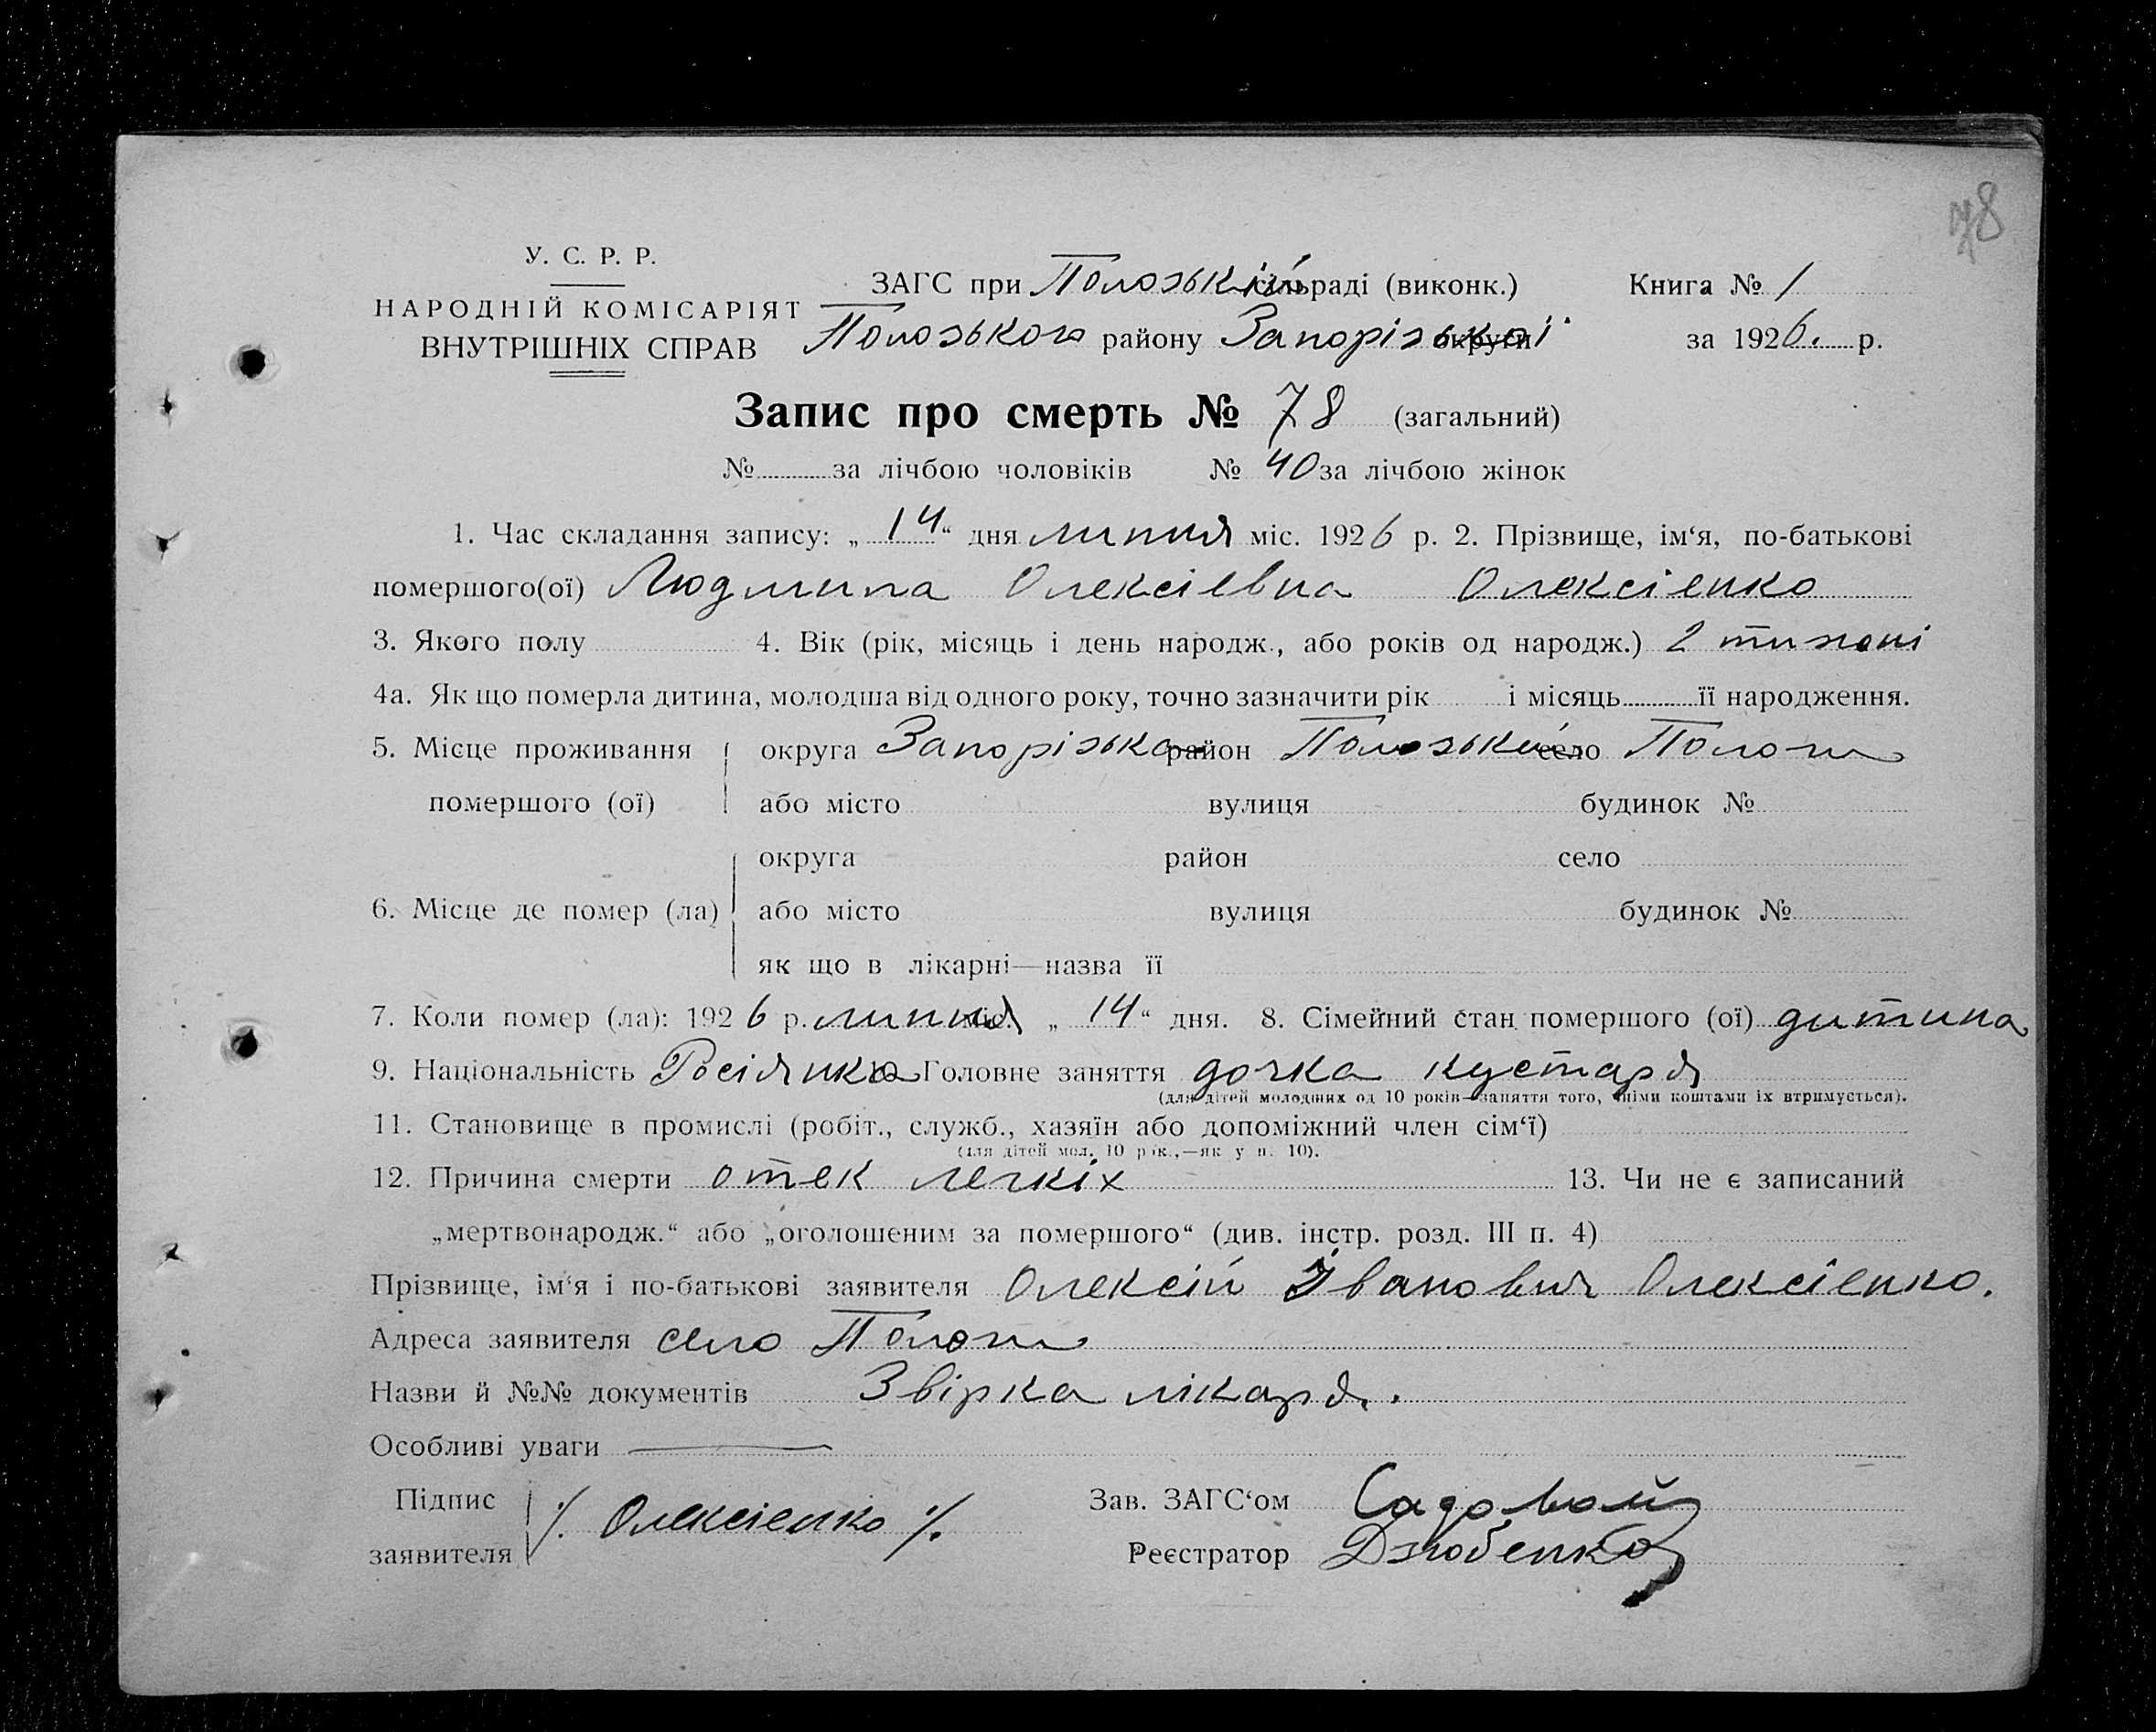 78
У. С. Р. Р.
НАРОДНІЙ КОМІСАРІЯТ
ВНУТРІШНІХ СПРАВ
ЗАГС при Полозькій сільраді (виконк.)
Полозького району Запорізької округи
Книга № 1
за 1926. р.
Запис про смерть № 78 (загальний)
№ за лічбою чоловіків № 40 за лічбою жінок
1. Час складання запису: „ 14 “ дня липня міс. 1926 р. 2. Прізвище, ім‘я, по-батькові
помершого(ої) Людмила Олексієвна Олексієнко
3. Якого полу 4. Вік (рік, місяць і день народж., або років од народж.) 2 тижні
4а. Як що померла дитина, молодша від одного року, точно зазначити рік і місяць її народження.
5. Місце проживання округа Запорізька район Полозький село Пологи
помершого (ої) або місто вулиця будинок №
округа район село
6. Місце де помер (ла) або місто вулиця будинок №
як що в лікарні—назва її
7. Коли помер (ла): 1926 р. липня міс. „ 14 “ дня. 8. Сімейний стан помершого (ої) дитина
9. Національність Росіянка Головне заняття дочка кустаря
(для дітей молодших од 10 років—заняття того, чиїми коштами їх втримується).
11. Становище в промислі (робіт., служб., хазяїн або допоміжний член сім‘ї)
(для дітей мол. 10 рок.,—як у п. 10).
12. Причина смерти отек легкіх 13. Чи не є записаний
„мертвонародж.“ або „оголошеним за помершого“ (див. інстр. розд. III п. 4)
Прізвище, ім‘я і по-батькові заявителя Олексій Іванович Олексієнко.
Адреса заявителя село Пологи
Назви й №№ документів Звірка лікаря.
Особливі уваги
Підпис
заявителя ./. Олексієнко ./.
Зав. ЗАГС‘ом Садовой
Реєстратор Дзюбенко